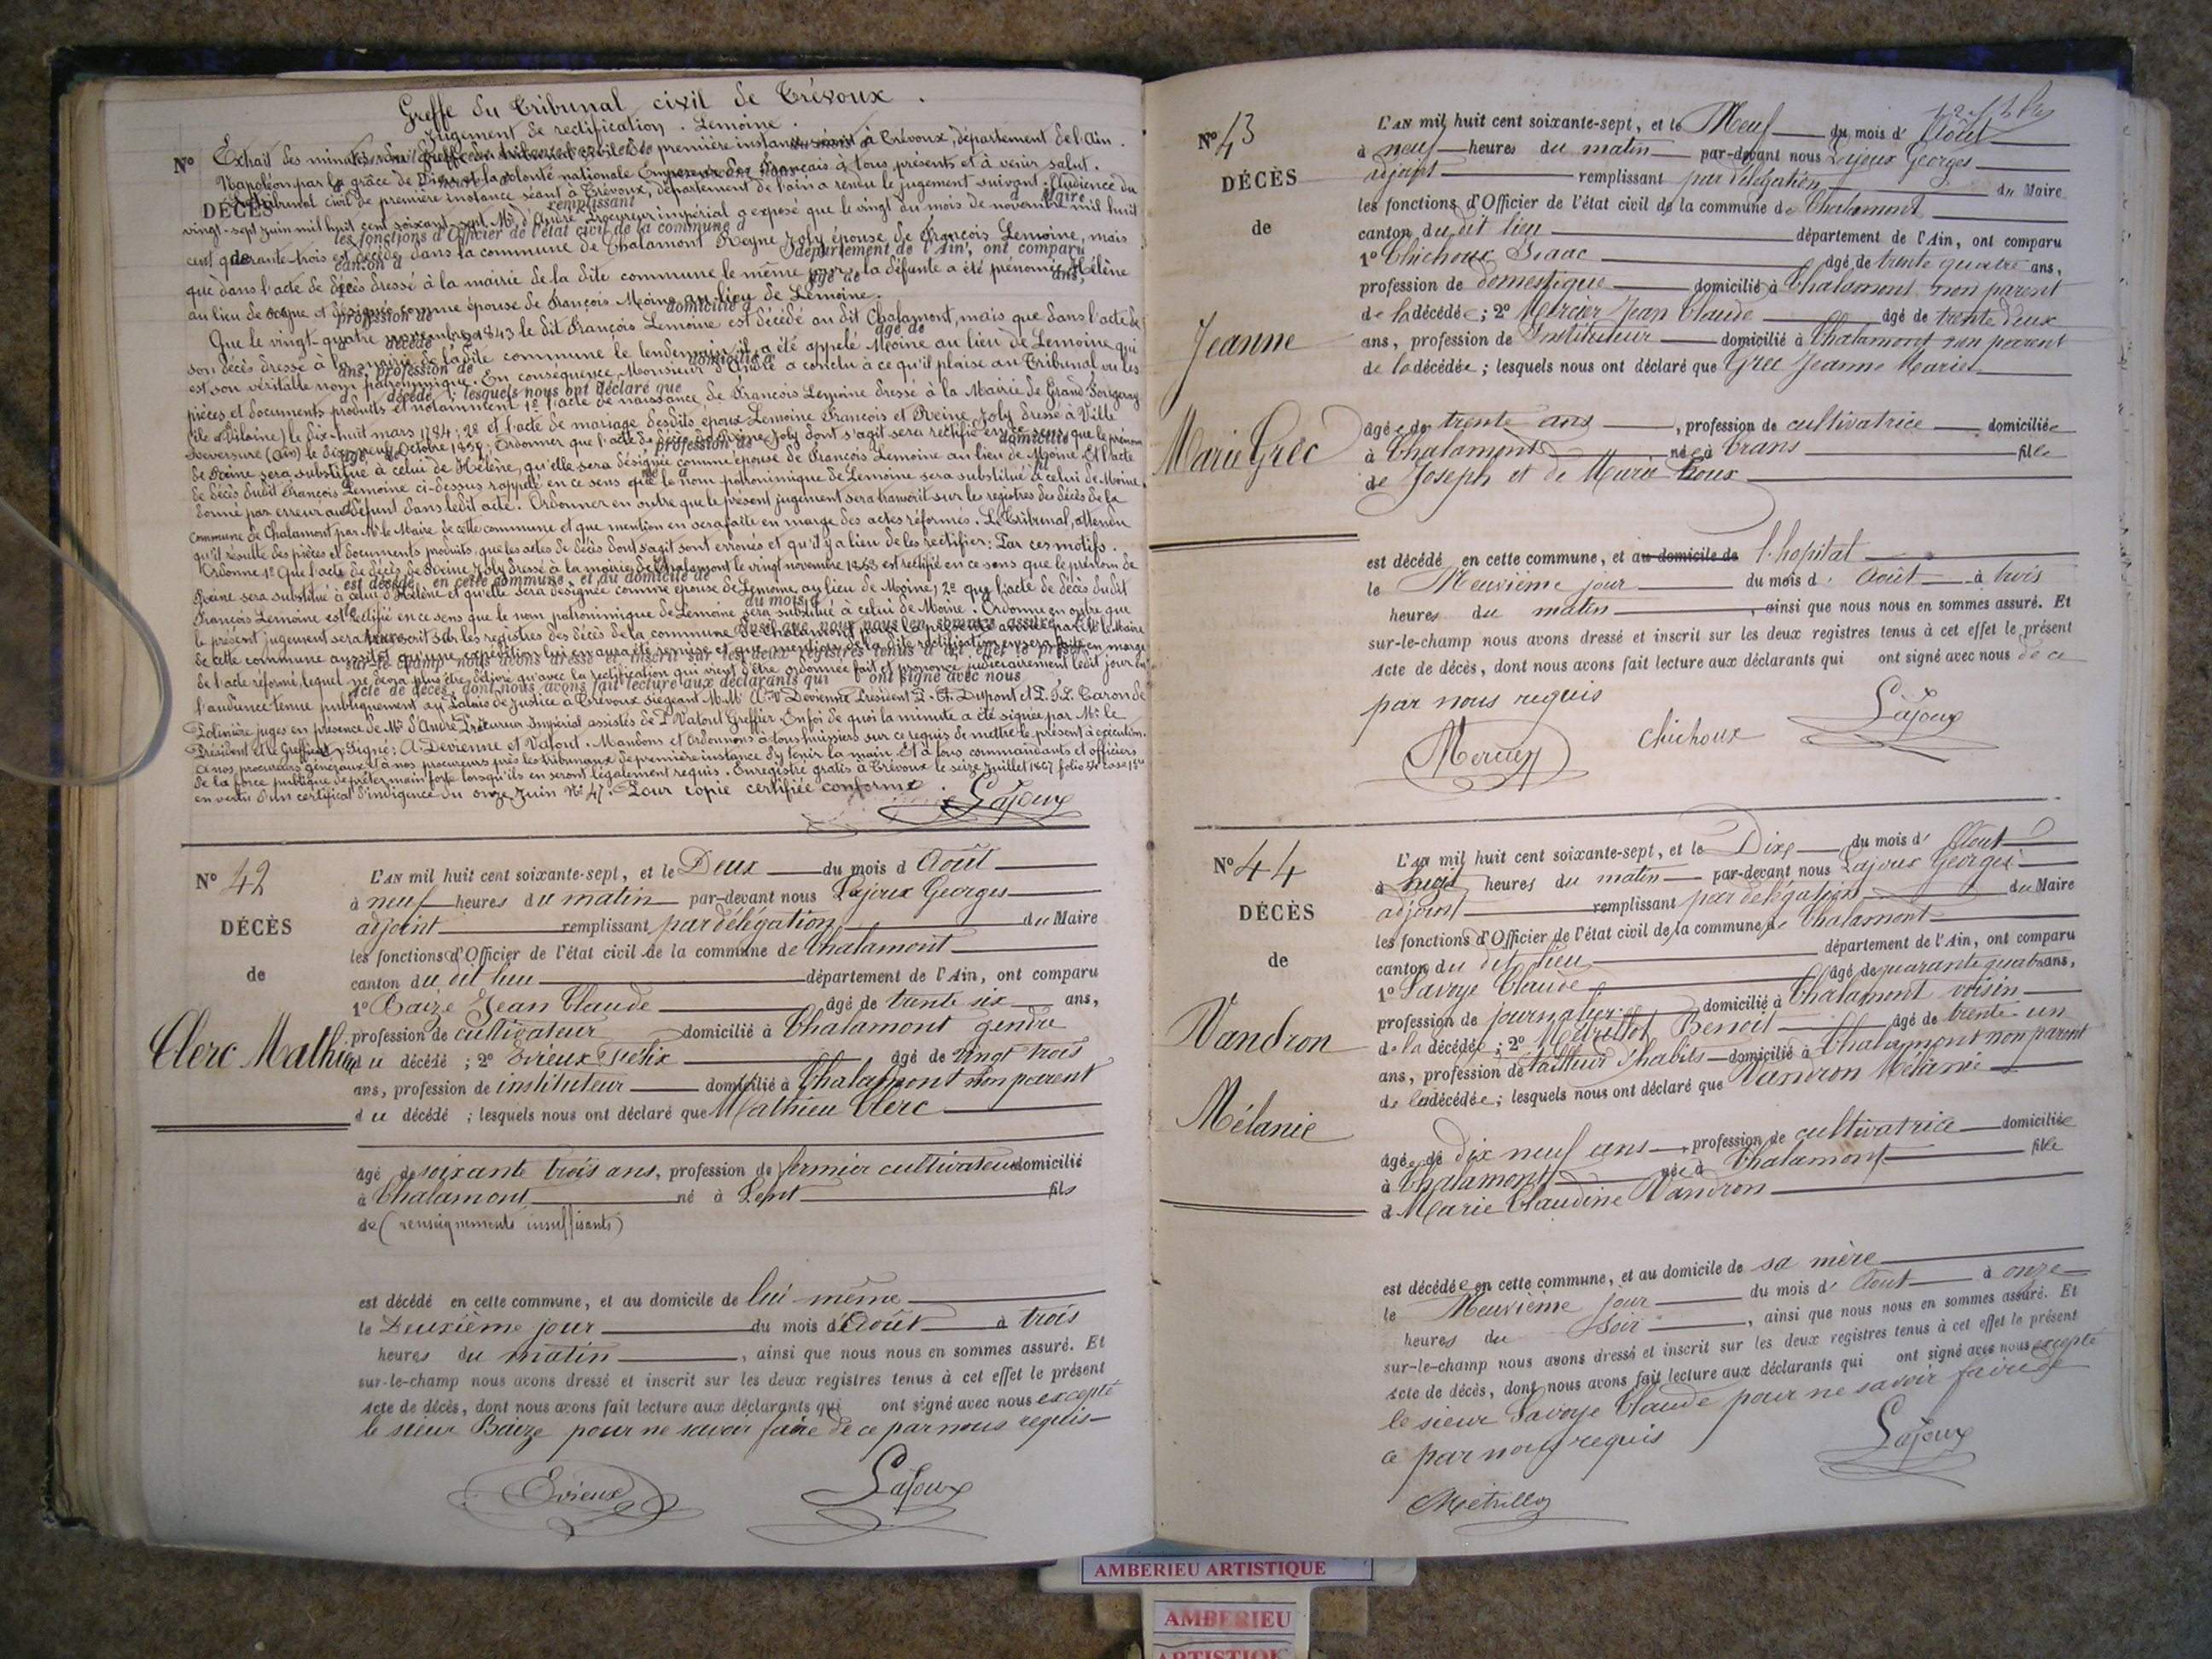 Greffe du Tribunal civil de Trévoux.
Jugement de rectification. Lemoine.
N° Extrait des minutes du Greffe du tribunal civil de première instance séant à Trévoux, département de l'Ain.
Napoléon par la grâce de Dieu et la volonté nationale Empereur des Français à tous présents et à venir salut.
Le Tribunal civil de première instance séant à Trévoux, département de l'ain a rendu le jugement suivant: Audience du
DÉCÈS
vingt-sept juin mil huit cent soixante-sept. Mr d'André Procureur impérial a exposé que le vingt du mois de novembre mil huit
cent quarante-trois est décédée dans la commune de Chalamont Reyne Joly épouse de François Lemoine, mais
que dans l'acte de décès dressé à la mairie de la dite commune le même jour, la défunte a été prénomée Hélène
au lieu de Reyne et désignée comme épouse de François Moine au lieu de Lemoine.
Que le vingt-quatre novembre 1843 le dit François Lemoine est décédé au dit Chalamont, mais que dans l'acte de
son décès dressé à la mairie de la dite commune le lendemain, il a été appelé Moine au lieu de Lemoine qui
est son véritable nom patronimique. En conséquence Monsieur d'André a conclu à ce qu'il plaise au Tribunal vu les
pièces et documents produits et notamment 1° l'acte de naissance de François Lemoine dressé à la Mairie de Grand Fougeray
(ile et Vilaine) le dix-huit mars 1784; 2° et l'acte de mariage desdits époux Lemoine François et Reine Joly dressé à Ville
Reversure (Ain) le octobre Ordonner que l'acte de décès de Reine Joly dont s'agit sera rectifié en ce sens que le prénom
de Reine sera substitué à celui de Hélène, qu'elle sera désignée comme épouse de François Lemoine au lieu de Moine. Et l'acte
de décès dudit François Lemoine ci-dessus rappelé en ce sens que le nom patronimique de Lemoine sera substitué à celui de Moine,
donné par erreur au défunt dans ledit acte. Ordonner en outre que le présent jugement sera transcrit sur les registres des décès de la
commune de Chalamont par Mr le Maire de cette commune et que mention en sera faite en marge des actes réformés. Le Tribunal, attendu
qu'il résulte des pièces et documents produits, que les actes de décès dont s'agit sont erronés et qu'il y a lieu de les rectifier: Par ces motifs.
Ordonne 1° Que l'acte de décès de Reine Joly dressé à la mairie de Chalamont le vingt novembre est rectifié en ce sens que le prénom de
Reine sera substitué à celui d'Hélène et qu'elle sera désignée comme épouse de Lemoine au lieu de Moine; 2° que l'acte de décès dudit
François Lemoine est rectifié en ce sens que le nom patronimique de Lemoine sera substitué à celui de Moine. Ordonne en outre que
le présent jugement sera transcrit sur les registres des décès de la commune de Chalamont pour la présente année par Mr le Maire
de cette commune aussitôt qu'une expédition lui en aura été remise et que mention de la dite rectification en sera faite en marge
de l'acte réformé, lequel ne devra plus être délivré qu'avec la rectification qui vient d'être ordonnée fait et prononcé judiciairement ledit jour en
l'audience tenue publiquement au Palais de Justice à Trévoux siégeant M.M. A. V Devienne Président Dupont et Caron de
Folinière juges en présence de Mr d'André Procureur Impérial assistés de Vatout Greffier. En foi de quoi la minute a été signée par Mr le
Président et le Greffier. Signé: A Devienne et Vatout. Mandons et Ordonnons à tous huissiers sur ce requis de mettre le présent à exécution.
à nos procureurs généraux et à nos procureurs près les tribunaux de première instance d'y tenir la main. Et à tous commandants et officiers
de la force publique de prêter main forte lorsqu'ils en seront légalement requis. Enregistré gratis à Trévoux le seize Juillet 1867 folio case
en vertu d'un certificat d'indigence du onze Juin N° 47. Pour copie certifiée conforme.
Lajoux
N° 42
DÉCÈS
de
Clerc Mathieu
L'AN mil huit cent soixante-sept, et le Deux du mois d Août
à neuf heures du matin par-devant nous Lajoux Georges
adjoint remplissant par délégation du Maire
les fonctions d'Officier de l'état civil de la commune de Chalamont
canton du dit lieu département de l'Ain, ont comparu
1° Baize Jean Claude âgé de trente six ans,
profession de cultivateur domicilié à Chalamont gendre
du décédé ; 2° Evieux Félix âgé de vingt trois
ans, profession de instituteur domicilié à Chalamont non parent
du décédé ; lesquels nous ont déclaré que Mathieu Clerc
âgé de soixante trois ans, profession de fermier cultivateur domicilié
à Chalamont né à Lent fils
de (renseignements insuffisants)
est décédé en cette commune, et au domicile de lui même
le Deuxième jour du mois d'Août à trois
heures du matin, ainsi que nous nous en sommes assuré. Et
sur-le-champ nous avons dressé et inscrit sur les deux registres tenus à cet effet le présent
Acte de décès, dont nous avons fait lecture aux déclarants qui ont signé avec nous excepté
le sieur Baize pour ne savoir faire de ce par nous requis
Evieux
Lajoux
N° 43
DÉCÈS
de
Jeanne
Marie Grec
L'AN mil huit cent soixante-sept, et le Neuf du mois d' Août
à neuf heures du matin par-devant nous Lajoux Georges
adjoint remplissant par délégation du Maire
les fonctions d'Officier de l'état civil de la commune de Chalamont
canton du dit lieu département de l'Ain, ont comparu
1° Chichoux Isaac âgé de trente quatre ans,
profession de domestique domicilié à Chalamont non parent
de la décédée ; 2° Mercier Jean Claude âgé de trente deux
ans, profession de Instituteur domicilié à Chalamont non parent
de la décédée ; lesquels nous ont déclaré que Grec Jeanne Marie
âgée de trente ans, profession de cultivatrice domiciliée
à Chalamont née à Crans fille
de Joseph et de Marie Roux
est décédé en cette commune, et au domicile de l'hopital
le Neuvième jour du mois d' Août à trois
heures du matin, ainsi que nous nous en sommes assuré. Et
sur-le-champ nous avons dressé et inscrit sur les deux registres tenus à cet effet le présent
Acte de décès, dont nous avons fait lecture aux déclarants qui ont signé avec nous de ce
par nous requis
Mercier
Chichoux
Lajoux
N° 44
DÉCÈS
de
Vandron
Mélanie
L'AN mil huit cent soixante-sept, et le Dix du mois d' Août
à huit heures du matin par-devant nous Lajoux Georges
adjoint remplissant par délégation du Maire
les fonctions d'Officier de l'état civil de la commune de Chalamont
canton du dit lieu département de l'Ain, ont comparu
1° Savoye Claude âgé de quarante quatre ans,
profession de journalier domicilié à Chalamont voisin
de la décédée ; 2° Métrillot Benoit âgé de trente un
ans, profession de tailleur d'habits domicilié à Chalamont non parent
de la décédée ; lesquels nous ont déclaré que Vandron Mélanie
âgée de dix neuf ans, profession de cultivatrice domiciliée
à Chalamont née à Chalamont fille
d Marie Claudine Vandron
est décédée en cette commune, et au domicile de sa mère
le Neuvième jour du mois d' Aout à onze
heures du Soir, ainsi que nous nous en sommes assuré. Et
sur-le-champ nous avons dressé et inscrit sur les deux registres tenus à cet effet le présent
Acte de décès, dont nous avons fait lecture aux déclarants qui ont signé avec nous excepté
le sieur Savoye Claude pour ne savoir faire de
ce par nous requis
Lajoux
Métrillot
AMBERIEU ARTISTIQUE
AMBERIEU
ARTISTIQUE